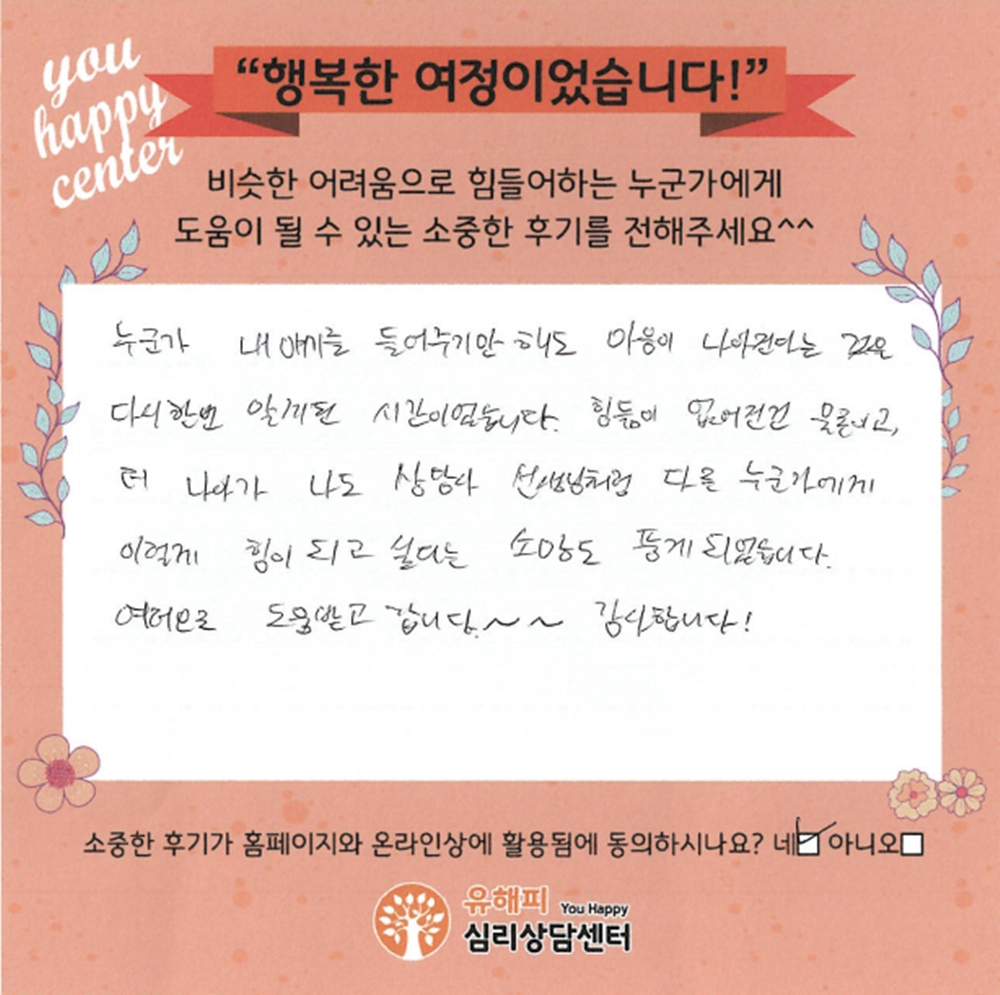 you
happy
center
“행복한 여정이었습니다!”
비슷한 어려움으로 힘들어하는 누군가에게
도움이 될 수 있는 소중한 후기를 전해주세요^^
누군가 내 얘기를 들어주기만 해도 마음이 나아진다는 것을
다시한번 알게된 시간이었습니다. 힘듦이 없어진건 물론이고,
더 나아가 나도 상담사 선생님처럼 다른 누군가에게
이렇게 힘이 되고 싶다는 소망도 품게 되었습니다.
여러모로 도움받고 갑니다.~~ 감사합니다!
소중한 후기가 홈페이지와 온라인상에 활용됨에 동의하시나요? 네 아니오
유해피 You Happy
심리상담센터